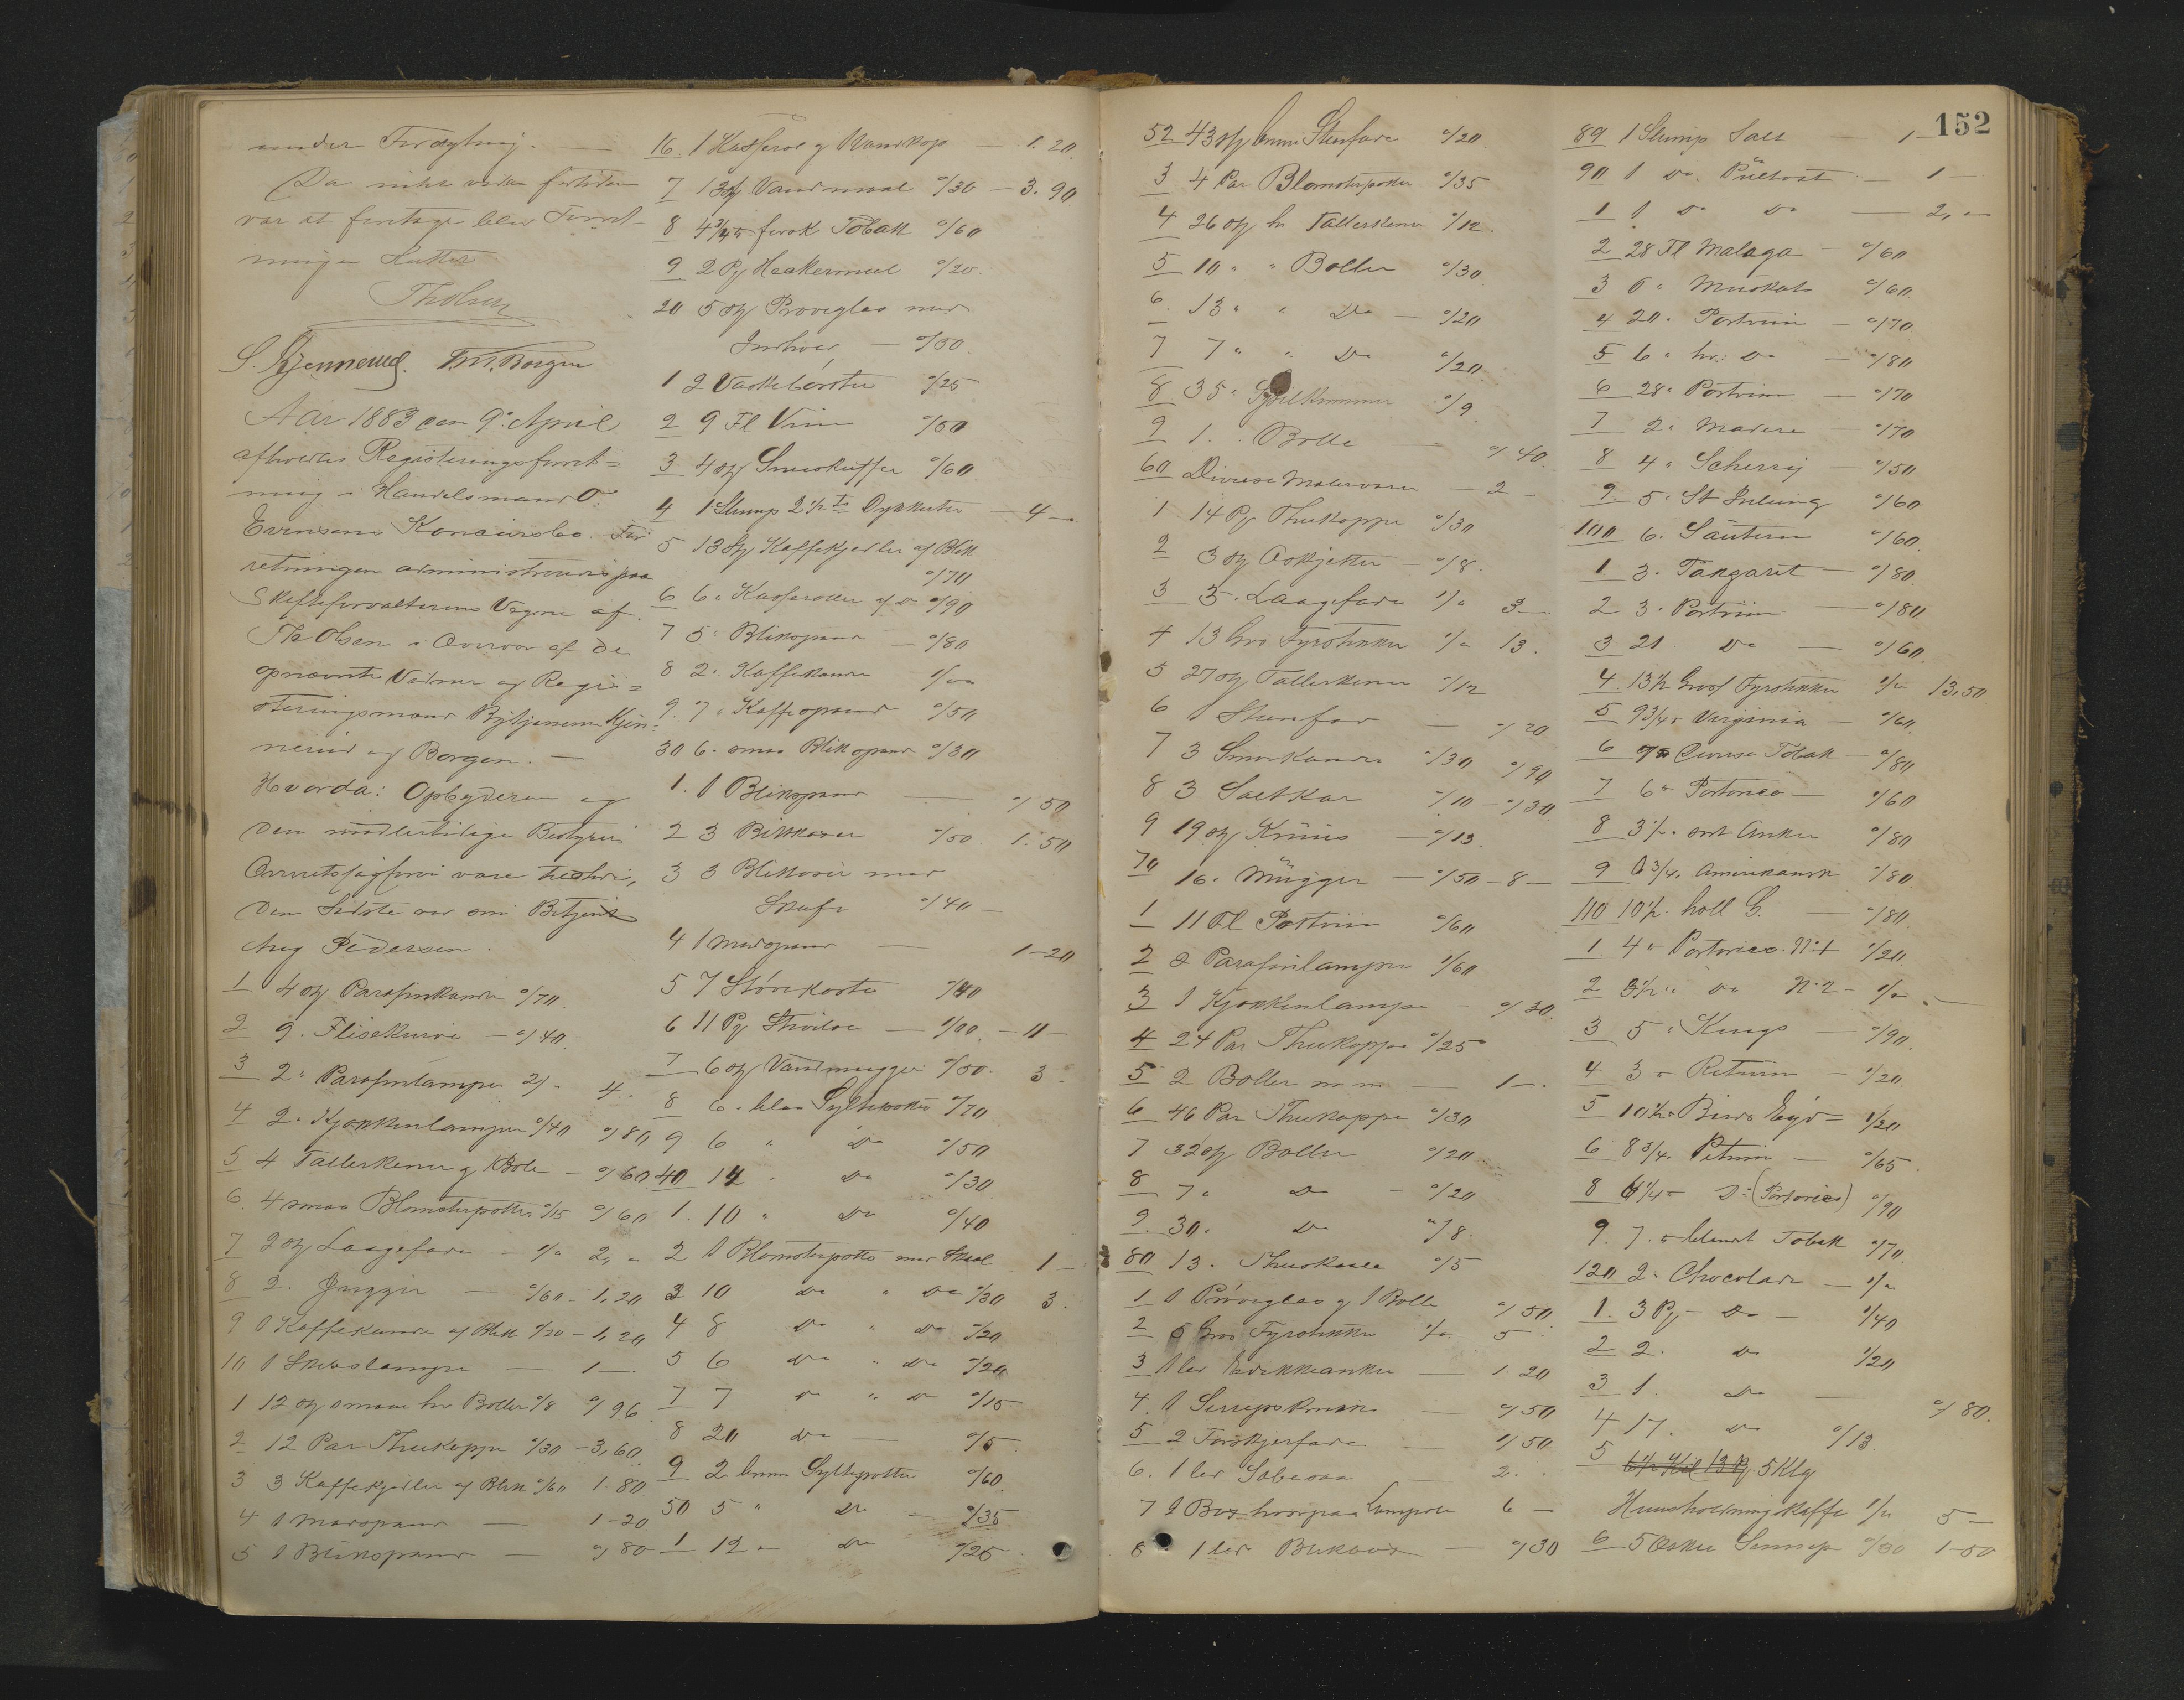 under
Da intet videre
var at foretage blev Forret-
ningen sluttet
ThOlsen
S. Gjennerud. M. Borgen
Aar 1883 den 9de April
afholdtes Registreringsforret=
ning i Handelsmand O.
Evensens Koncursbo. For
retningen administreredes paa
Skifteforvalterens Vegne af
Th Olsen i Overvær af de
opnævnte Vidner og Regi=
steringsmænd
nerud og Borgen. —
Hvorda: Opbyderen og
den midlertidige Bestyrer
Overretssagfører vare tilstede,
den Sidste ved sin Betjent
Aug Pedersen.
1 4 stk Parafinkander 0/70
2 9. Flisekurve — 0/40
3 2" Parafinlamper 2/- 4.
4 2. Kjøkkenlamper 0/40 0/80
5 4 Tallerkener og 1 Bolle — 0/60
6. 4 smaa Blomsterpotter 0/15 0/60
7 2 stk Laagefade — 1/" 2,"
8 2. Jugger — 0/60 - 1,20
9 1 Kaffekande af Blik 1/20 - 1,20
10 1 Skibslampe — 1 —
1 12 stk smaa hv Boller 0/8 0/96
2 12 Par Theekopper 0/30 - 3,60
3 3 Kaffekjedler af Blik 0/60 1.80
4 1 Madspand — 1-20
5 1 Blikspand — 0/80
16 1 Kasserol og Vandkop — 1.20
7 13 stk Vandmaal 0/30 — 3.90
8 4 3/4 Tobak 0/60
9 2 Pk Hakkemel 0/20
20 5 stk Prøveglas med
Indhold — 0/50
1 2 Vaskebørster 0/25
2 9 Fl Viin 0/50
3 4 stk Snuskuffer 0/60
4 1 Slump 2 1/2 — 4 —
5 13 stk Kaffekjedler af Blik
0/70
6 6" Kasseroller af do 0/90
7 5" Blikspand — 0/80
8 2. Kaffekander 1/00
9. 7. Kaffespand 0/50
30 6. smaa Blikspand 0/30
1. 1 Blikspand — 0/50
2 3 Blikkasser 0/50 1.50
3 3 Blikøser med
Skaft 0/40 —
4 1 Madspand — 1-20
5 7 Støvekoste 0/40
6 11 Pk 1/00 - 11 —
7 6 stk Vandmugger 0/50. 3.
8 6. blaa Syltepotter 0/70
9 6 " Do 0/50
40 14 " Do 0/30
1. 10 " Do 0/40
2 1 Blomsterpotte med Skaal 1 —
3 10 Do " Do 0/30 3.
4 8 Do " Do 0/20
5 6 Do " Do 0/20
7 7 Do " Do 0/15
8 20 Do — 0/5
9 2. brune Syltepotter 0/60
50 5 " Do — 0/35
1 12 " Do 0/25
152
52 43 stk brune Steenfade 0/20
3 4 Par Blomsterpotter 0/35
4 26 stk hv Tallerkener 0/12.
5 10 " " Boller 0/30
6. 13 " " Do — 0/20
7 7 " " Do 0/20
8 35 " 0/9
9 1. . Bolle — 0/40.
60 Diverse Malervarer — 2 —
1 14 Pk Theekopper 0/30
2 3 stk Askjetter — 0/8.
3 3. Laagefade 1/" 3 —
4 13 Gros Fyrstikker 1/" 13.
5 27 stk Tallerkener 0/12
6 1 Steenfad — 0/20
7 3 Smørkander 0/30 0/90
8 3 Saltkar 0/10 - 0/30
9 19 stk Kruus — 0/13
70 16. Mugger — 0/50 - 8 —
1 11 Fl Portviin 0/60
2 2 Parafinlamper 1/60
3 1 Kjøkkenlampe — 0/30.
4 24 Par Theekopper 0/25
5 2 Boller m m — 1 —.
6 46 Par Theekopper 0/30
7 32 stk Boller 0/20
8 7 " Do — 0/20
9. 30. Do 0/8.
80 13. Theeskaale 0/5
1 1 Prøveglas og 1 Bolle 0/50
2 5 Gros Fyrstikker 1/" 5 —
3 1 led Eddikkeanker — 1.20
4. 1 Sirupskrukke — 0/50
5 2 Torskjerfade — 0/50
6. 1 led — 2..
7 2 Box hvorpaa Lampeolie 6 —
8 1 led — 0/30
89 1 Slump Salt — 1 —
90 1 do. Pultost — 1 —
1 1 Do Do — 2,"
2 28 Fl Malaga — 0/60
3 6 " Muskat 0/60
4 20. Portviin — 0/70
5 6 " hv: Do — 0/80
6 28. Portviin — 0/70
7 2. Madera — 0/70
8 4. Scherry — 0/50
9. 5. St Julung 0/60
100 6. Sauterne 0/60.
1 3. Takgaret — 0/80
2 3. Portviin — 0/80
3 21 Do — 0/60
4. 13 1/2 Gros Fyrstikker 1/" 13,50
5 9 3/4 Virginia — 0/60
6 Diverse Tobak — 0/80
7 6 Portorico — 0/60
8 3 1/2. sort Anker 0/80
9 1 3/4. Amerikansk 0/80
110 10 1/2. holl G. — 0/80.
1. 4 Portorico. No 1 1/20
2 3 1/2 " Do No 2 - 1/" "—
3 5 " Kings — 0/90.
4 3 Retum — 1/20
5 10 1/2 1/20
6 8 3/4. Petum — 0/65
8 6 1/4 Do (Portorico) 0/90
9. 7. blandet Tobak 0/70
120 2. Chocolade — 1/"
1. 3 Pk — Do — 0/40
2 2. Do 1/20
3 1. Do — 0/80.
4 17. Do 0/13
5 6 1/2 Kil 13 Pk. 5 Klg
Huusholdningskaffe 1/" 5 —
6 5 Æsker Sennep 0/30 1-50